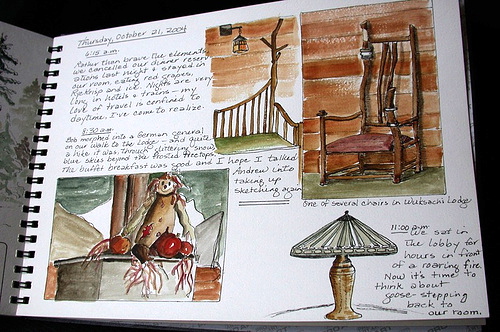 Thursday, October 21, 2004
6:15 a.m.
Rather than brave the elements
we cancelled our dinner reserv
ations last night & stayed in
our room, eating red grapes,
and ice. Nights are very
long in hotels & trains – my
love of travel is confined to
daytime. I've come to realize.
9:30 a.m.
Bob morphed into a German general
on our walk to the lodge – and quite
a hike it was, through glittering snow,
blue skies beyond the frosted treetops.
The buffet breakfast was good and I hope I talked
Andrew into
taking up
sketching again
One of several chairs in Wuksachi Lodge
11:00 p.m.
We sat in
the lobby for
hours in front
of a roaring fire.
Now it's time to
think about
goose-stepping
back to
our room.